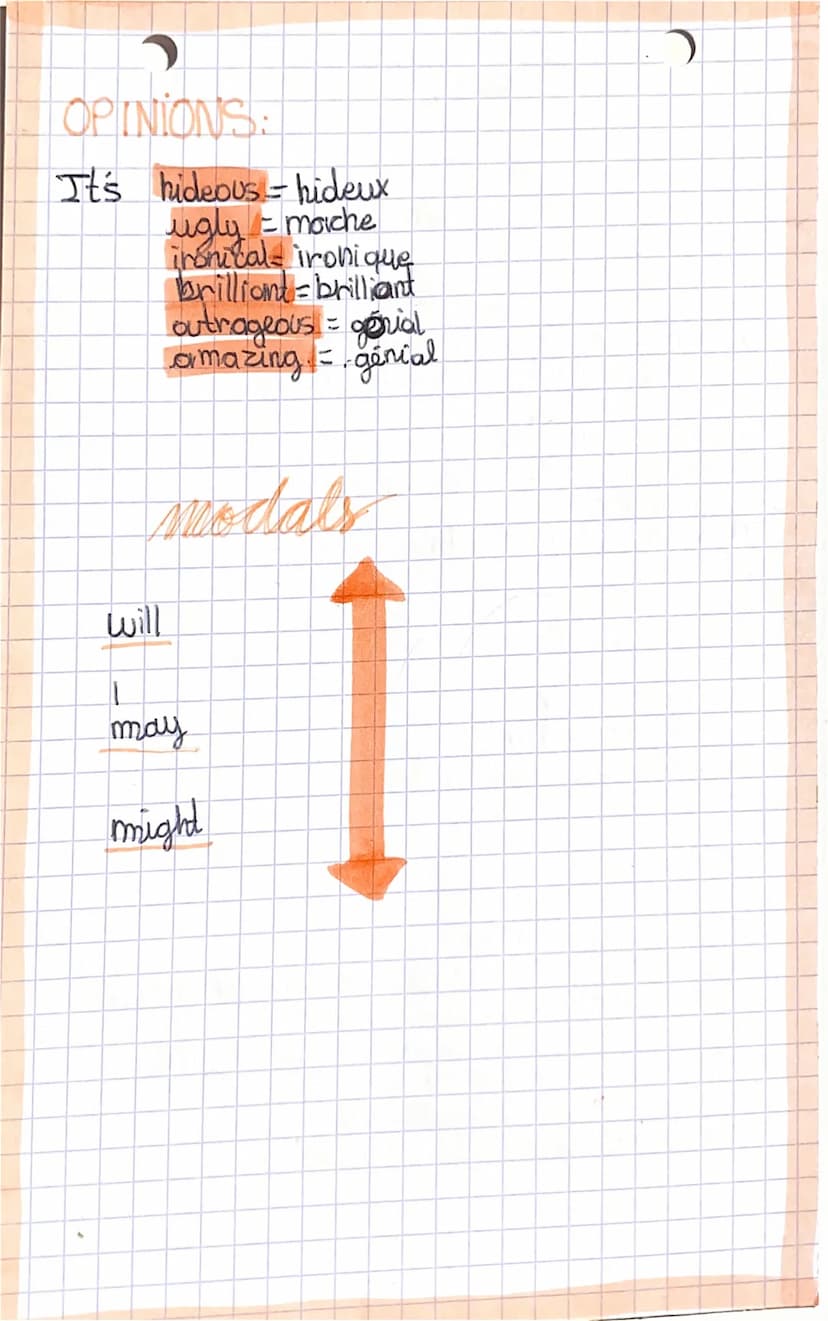 OPINIONS:
It's hideous = hideux
ugly = moche
ironical = ironique
brilliant = brilliant
outrageous = génial
amazing. = .génial
modals
will
may
might